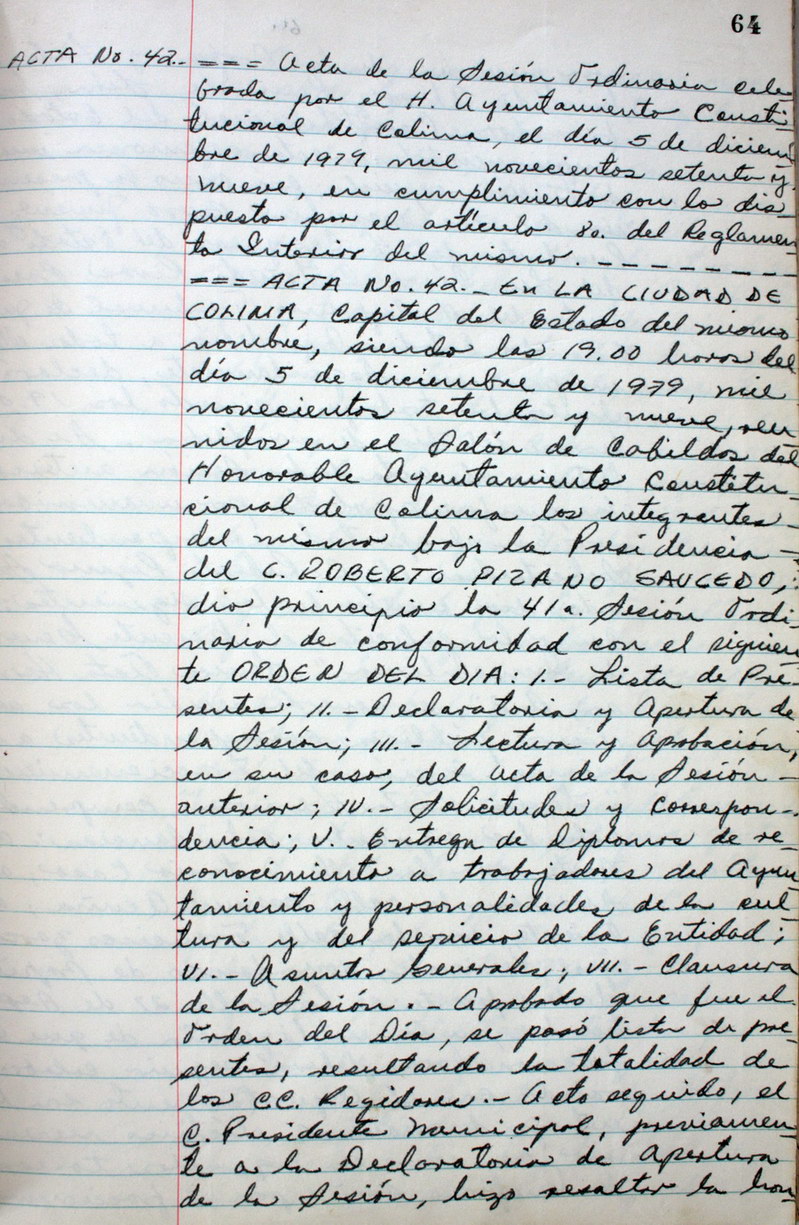 64
ACTA No. 42.- === Acta de la Sesión Ordinaria cele-
brada por el H. Ayuntamiento Consti-
tucional de Colima, el día 5 de diciem-
bre de 1979, mil novecientos setenta y
nueve, en cumplimiento con lo dis-
puesto por el artículo 8o. del Reglamen-
to Interior del mismo. - - - - - - - -
=== ACTA No. 42.- En LA CIUDAD DE
COLIMA, Capital del Estado del mismo
nombre, siendo las 19.00 horas del
día 5 de diciembre de 1979, mil
novecientos setenta y nueve, reu-
nidos en el Salón de Cabildos del
Honorable Ayuntamiento Constitu-
cional de Colima los integrantes -
del mismo bajo la Presidencia -
del C. ROBERTO PIZANO SAUCEDO,
dio principio la 41a. Sesión Ordi-
naria de conformidad con el siguien-
te ORDEN DEL DIA: I.- Lista de Pre-
sentes; II.- Declaratoria y Apertura de
la Sesión; III.- Lectura y Aprobación,
en su caso, del acta de la Sesión -
anterior; IV.- Solicitudes y Correspon-
dencia; V.- Entrega de Diplomas de re-
conocimiento a trabajadores del Ayun-
tamiento y personalidades de la cul-
tura y del servicio de la Entidad;
VI.- Asuntos Generales; VII.- Clausura
de la Sesión. - Aprobado que fue el
Orden del Día, se pasó lista de pre-
sentes, resultando la totalidad de
los CC. Regidores.- Acto seguido, el
C. Presidente Municipal, previamen-
te a la Declaratoria de Apertura
de la Sesión, hizo resaltar la hon-